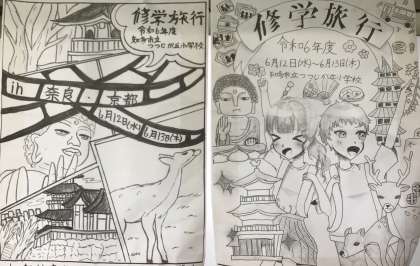 修学旅行
令和6年度
知多市立
つつじが丘小学校
in
奈良・京都
6月12日(水)
6月13日(木)
修学旅行
令和06年度
6月12日(水)~6月13日(木)
知多市立つつじが丘小学校